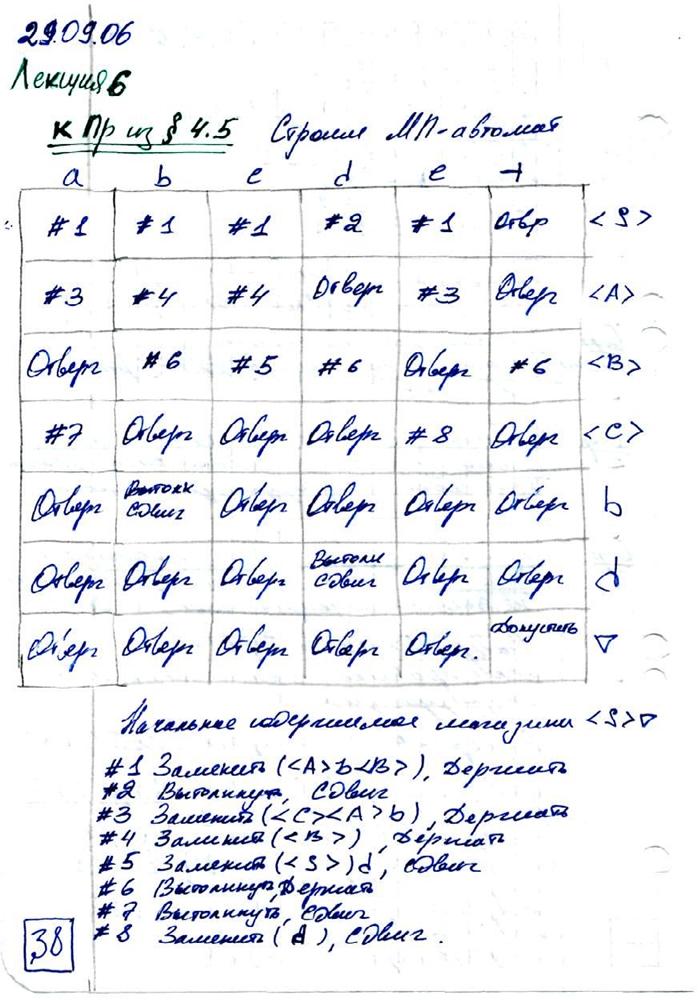 29.09.06
Лекция 6
к Пр из § 4.5 Строим МП-автомат
a b c d e ⊣
#1 #1 #1 #2 #1 Отвр <S>
#3 #4 #4 Отверг #3 Отверг <A>
Отверг #6 #5 #6 Отверг #6 <B>
#7 Отверг Отверг Отверг #8 Отверг <C>
Отверг Вытолк Сдвиг Отверг Отверг Отверг Отверг b
Отверг Отверг Отверг Вытолк Сдвиг Отверг Отверг d
Отверг Отверг Отверг Отверг Отверг. Допустить ▽
Начальное содержимое магазина <S>▽
#1 Заменить (<A>b<B>), Держать
#2 Вытолкнуть, Сдвиг
#3 Заменить (<C><A>b), Держать
#4 Заменить (<B>), Держать
#5 Заменить (<S>)d, Сдвиг
#6 Вытолкнуть, Держать
#7 Вытолкнуть, Сдвиг
#8 Заменить (d), Сдвиг.
38